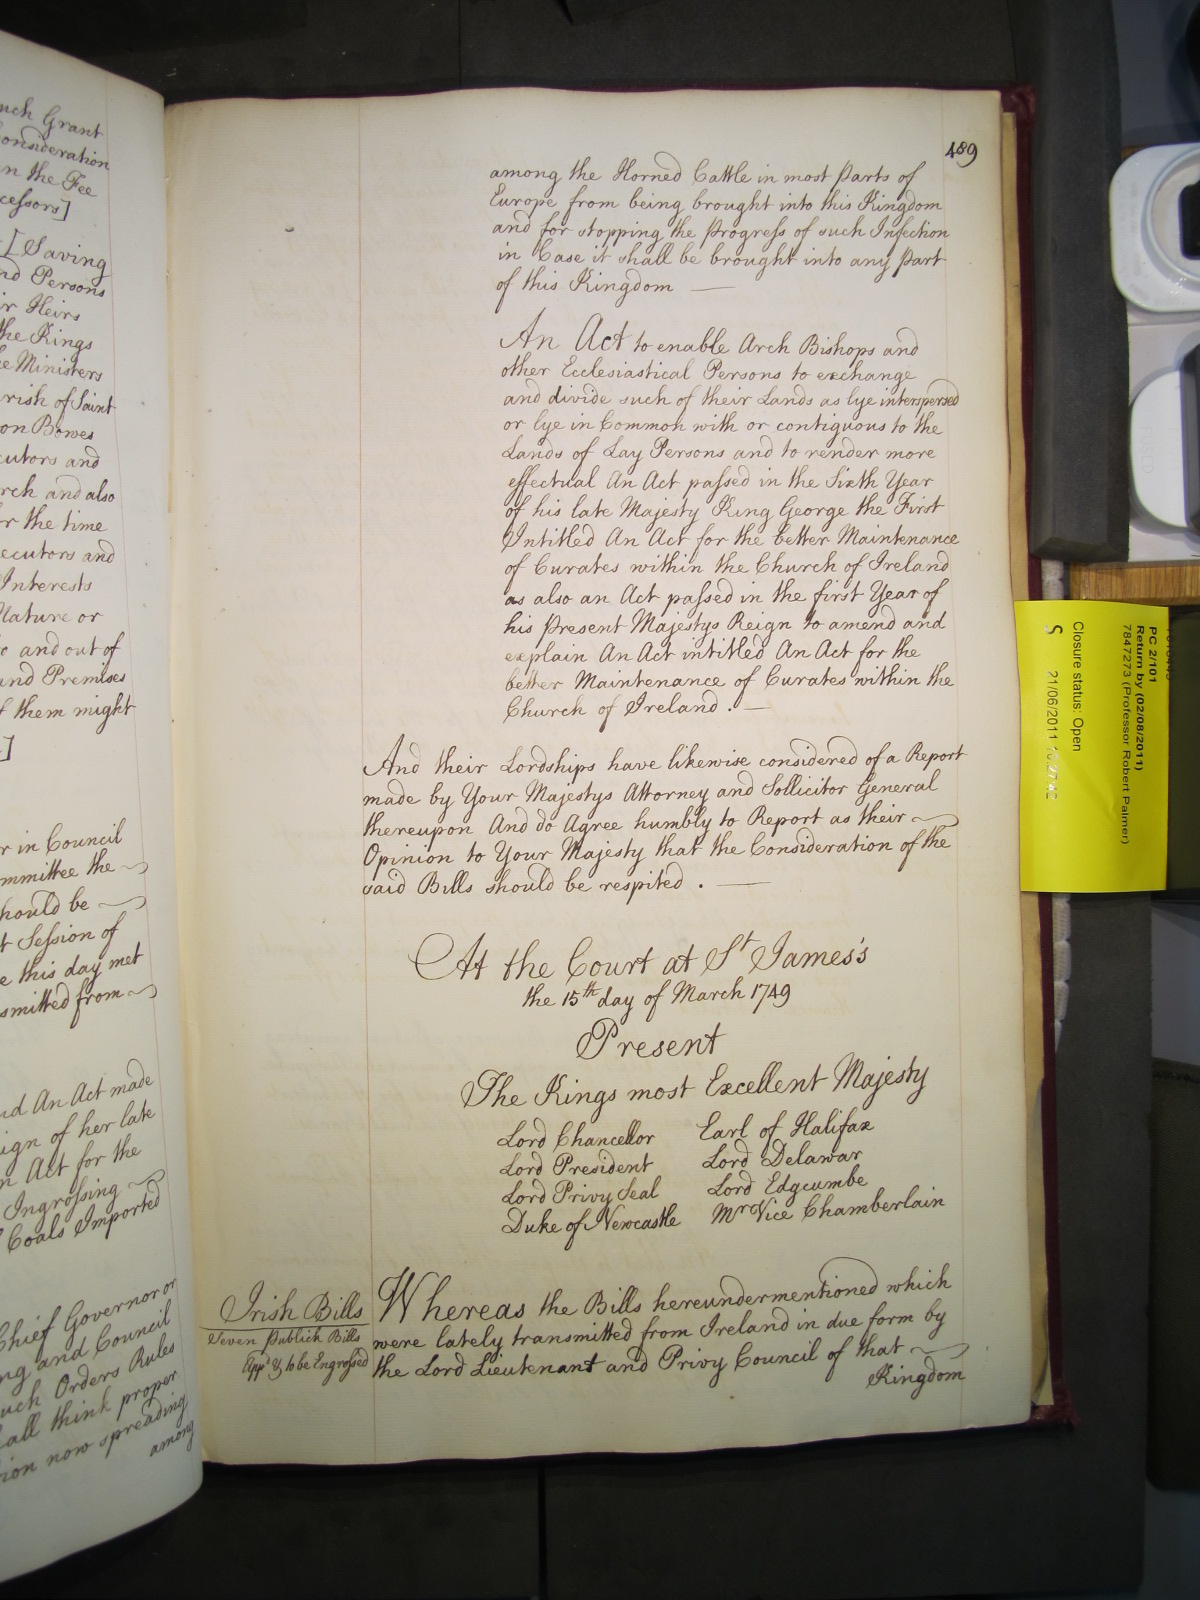 uch Grant
onsideration
n the Fee
cessors]
[Saving
nd Persons
ir Heirs
the Kings
e Ministers
rish of Saint
on Bowes
cutors and
rch and also
r the time
ecutors and
Interests
Nature or
and out of
and Premises
f them might
]
r in Council
mmittee the
should be
t Session of
e this day met
smitted from
nd An Act made
ign of her late
n Act for the
Ingrossing
Coals Imported
Chief Governor or
ng and Council
uch Orders Rules
all think proper
ion now spreading
among
489
among the Horned Cattle in most Parts of
Europe from being brought into this Kingdom
and for stopping the Progress of such Infection
in Case it shall be brought into any Part
of this Kingdom —
An Act to enable Arch Bishops and
other Ecclesiastical Persons to exchange
and divide such of their Lands as lye interspersed
or lye in Common with or contiguous to the
Lands of Lay Persons and to render more
effectual An Act passed in the Sixth Year
of his late Majesty King George the First
Intitled An Act for the better Maintenance
of Curates within the Church of Ireland
as also an Act passed in the first Year of
his Present Majestys Reign to amend and
explain An Act intitled An Act for the
better Maintenance of Curates within the
Church of Ireland. —
And their Lordships have likewise considered of a Report
made by Your Majestys Attorney and Sollicitor General
thereupon And do Agree humbly to Report as their
Opinion to Your Majesty that the Consideration of the
said Bills should be respited. —
At the Court at St James's
the 15th day of March 1749
Present
The Kings most Excellent Majesty
Lord Chancellor Earl of Halifax
Lord President Lord Delawar
Lord Privy Seal Lord Edgcumbe
Duke of Newcastle Mr Vice Chamberlain
Irish Bills
Seven Publick Bills
App'd & to be Engrossed
Whereas the Bills hereundermentioned which
were lately transmitted from Ireland in due form by
the Lord Lieutenant and Privy Council of that
Kingdom
PC 2/101
Return by (02/08/2011)
7847273 (Professor Robert Palmer)
Closure status: Open
S 21/06/2011